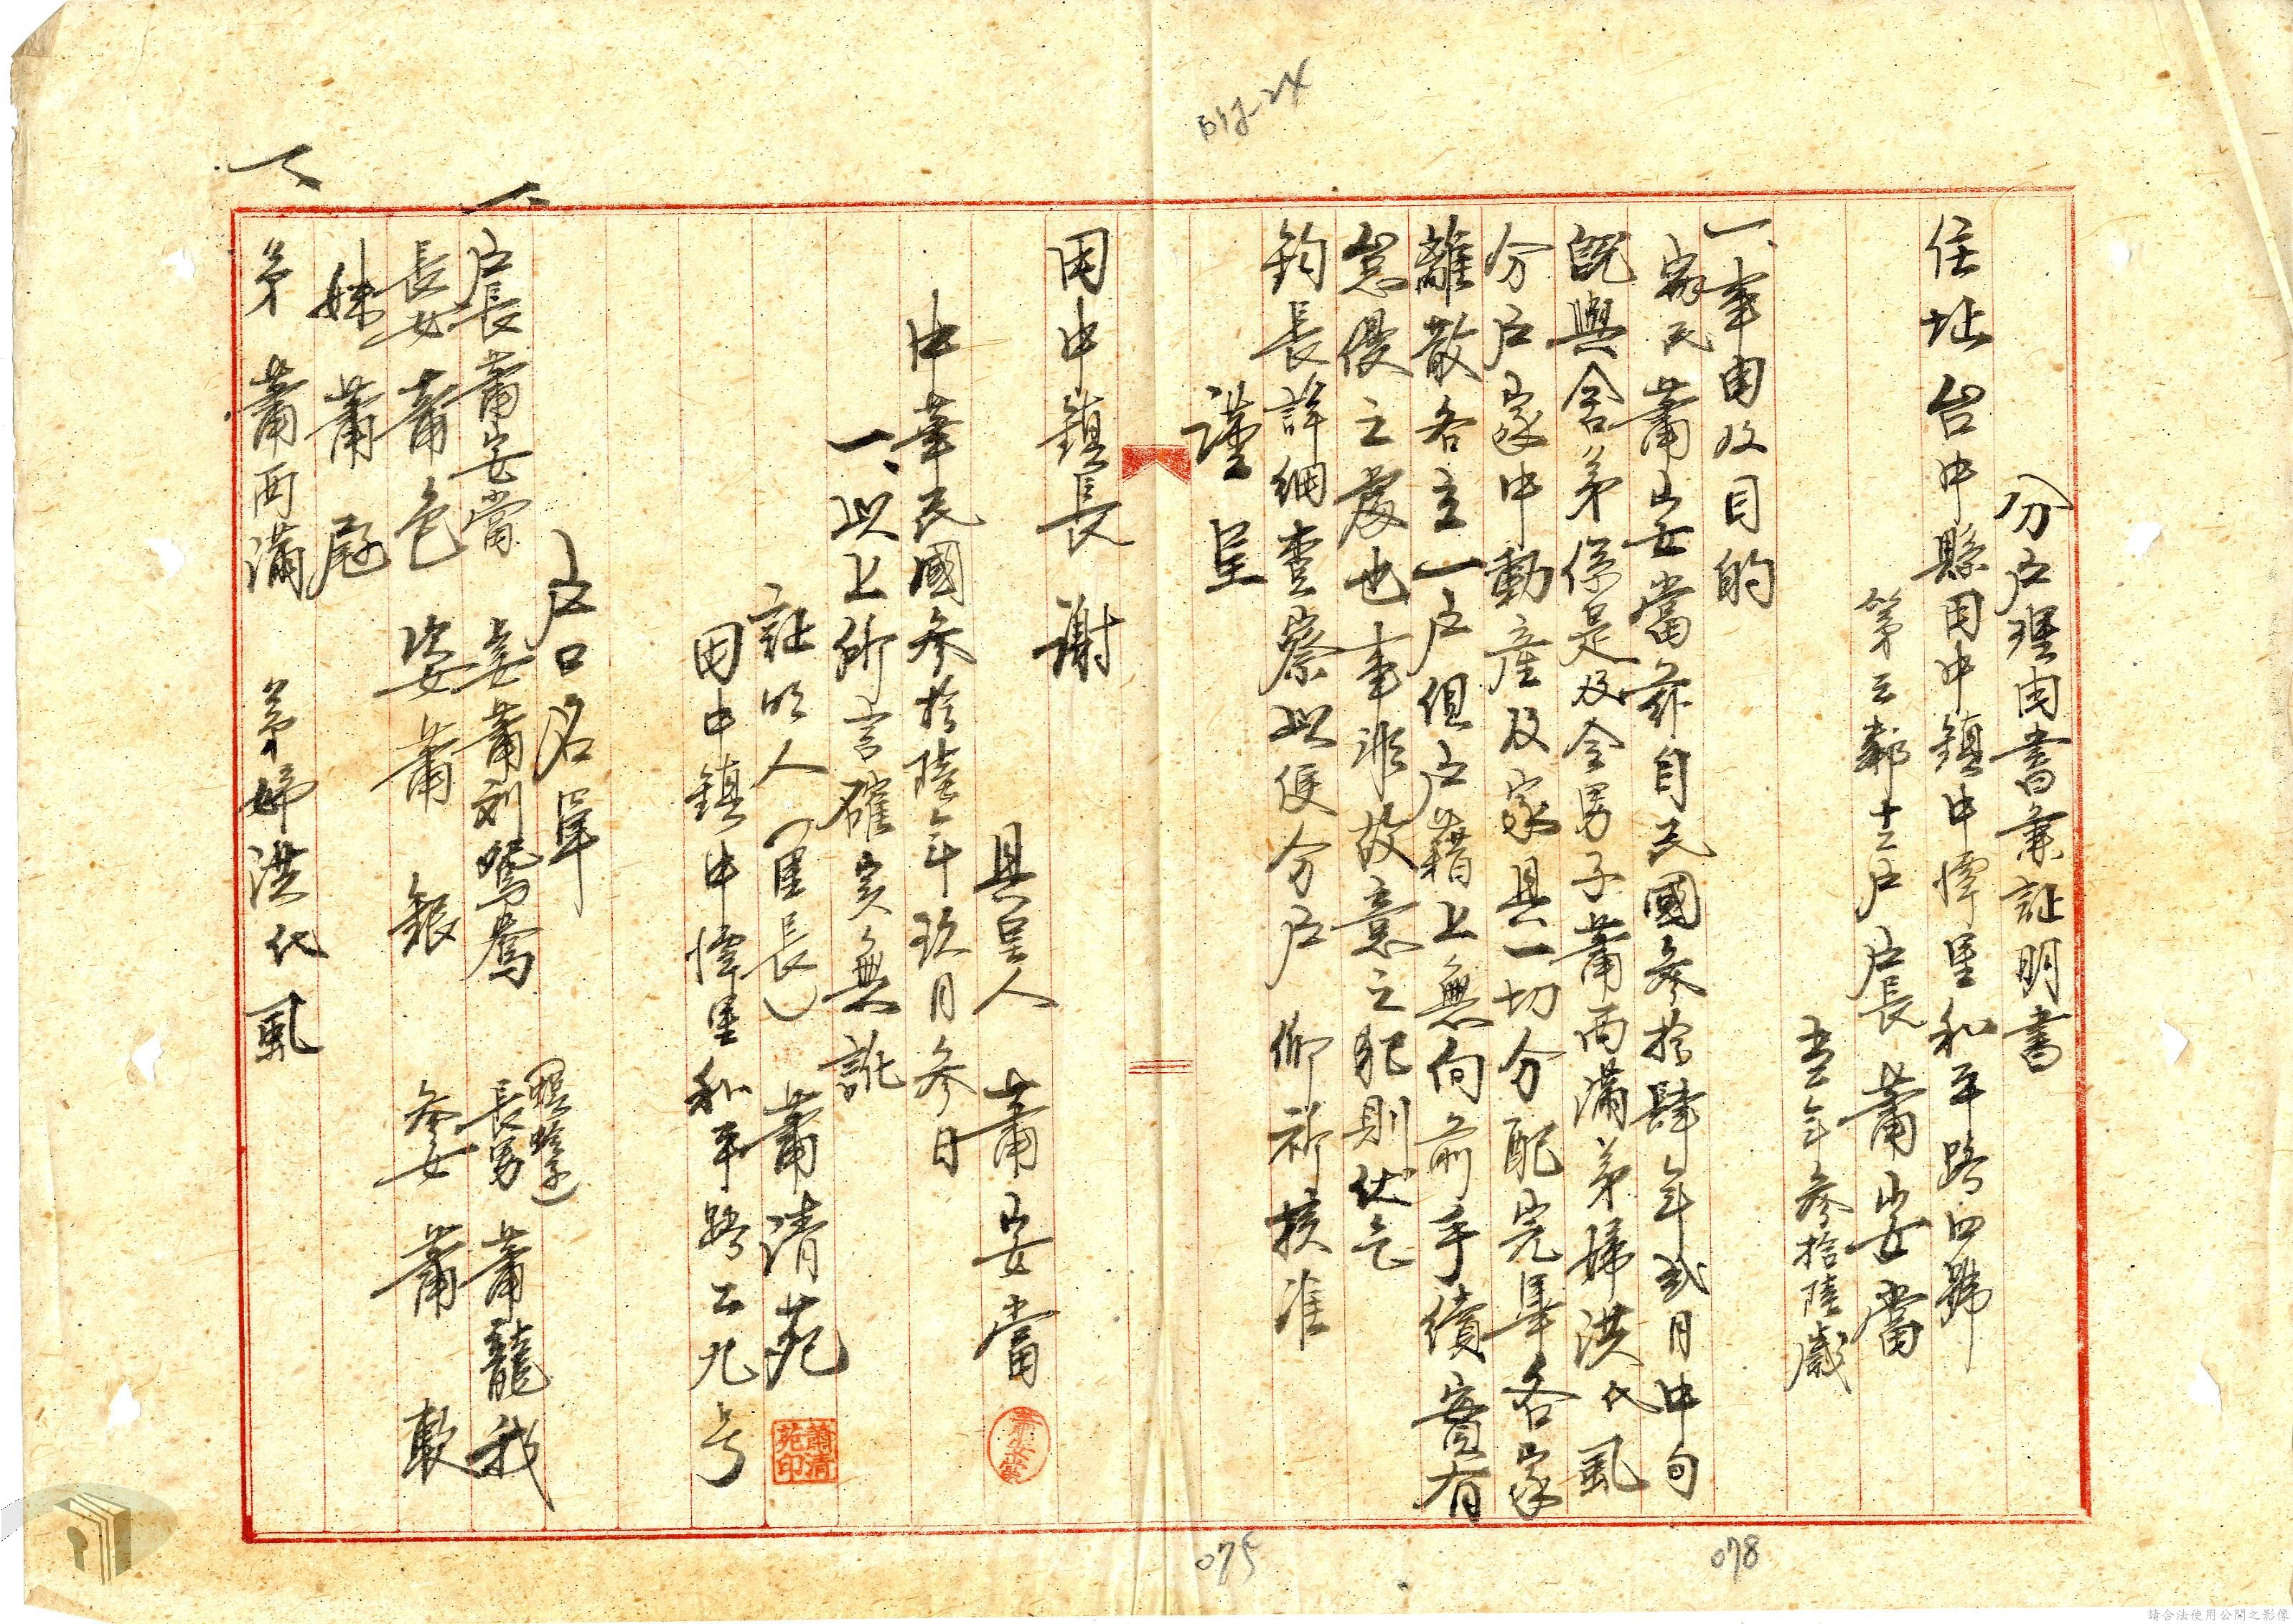 分户理由書兼証明書
住址 台中縣田中鎮中潭里和平路四號
第三鄰十三户 户長 蕭安當
年參拾陸歲
一、事由及目的
窃民蕭安當茲自民國參拾肆年弍月中旬
既與舍弟係是及令男子蕭两滿弟婦洪氏虱
分户家中動産及家具一切分配完畢各家
離散各立一户但户籍上無向前手續實有
怠慢之處也事非故意之犯則伏乞
鈞長詳細查察以便分户 仰祈核准
謹呈
田中鎮長 謝
具呈人 蕭安當
蕭安當
中華民國參拾陸年玖月參日
一、以上所言確实無訛
証明人(里長) 蕭清苑
蕭清苑印
田中鎮中潭里和平路二九号
户口名單
一、户長 蕭安當 妻 蕭刘鴛鴦 長男 蕭龍我
長女 蕭色 次女 蕭銀 參女 蕭
妹 蕭尾
一、弟 蕭两滿 弟婦 洪氏虱
614-24
075
078
請合法使用公開之影像